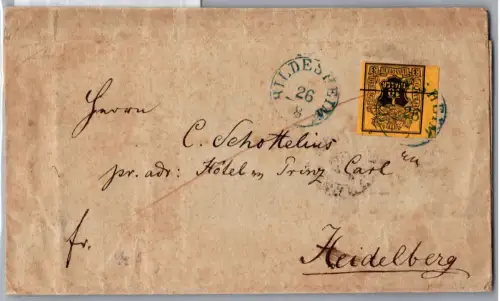 HILDESHEIM
26
8
Herrn
C. Schottelius
pr. adr: Hôtel
Prinz Carl
fr.
Heidelberg